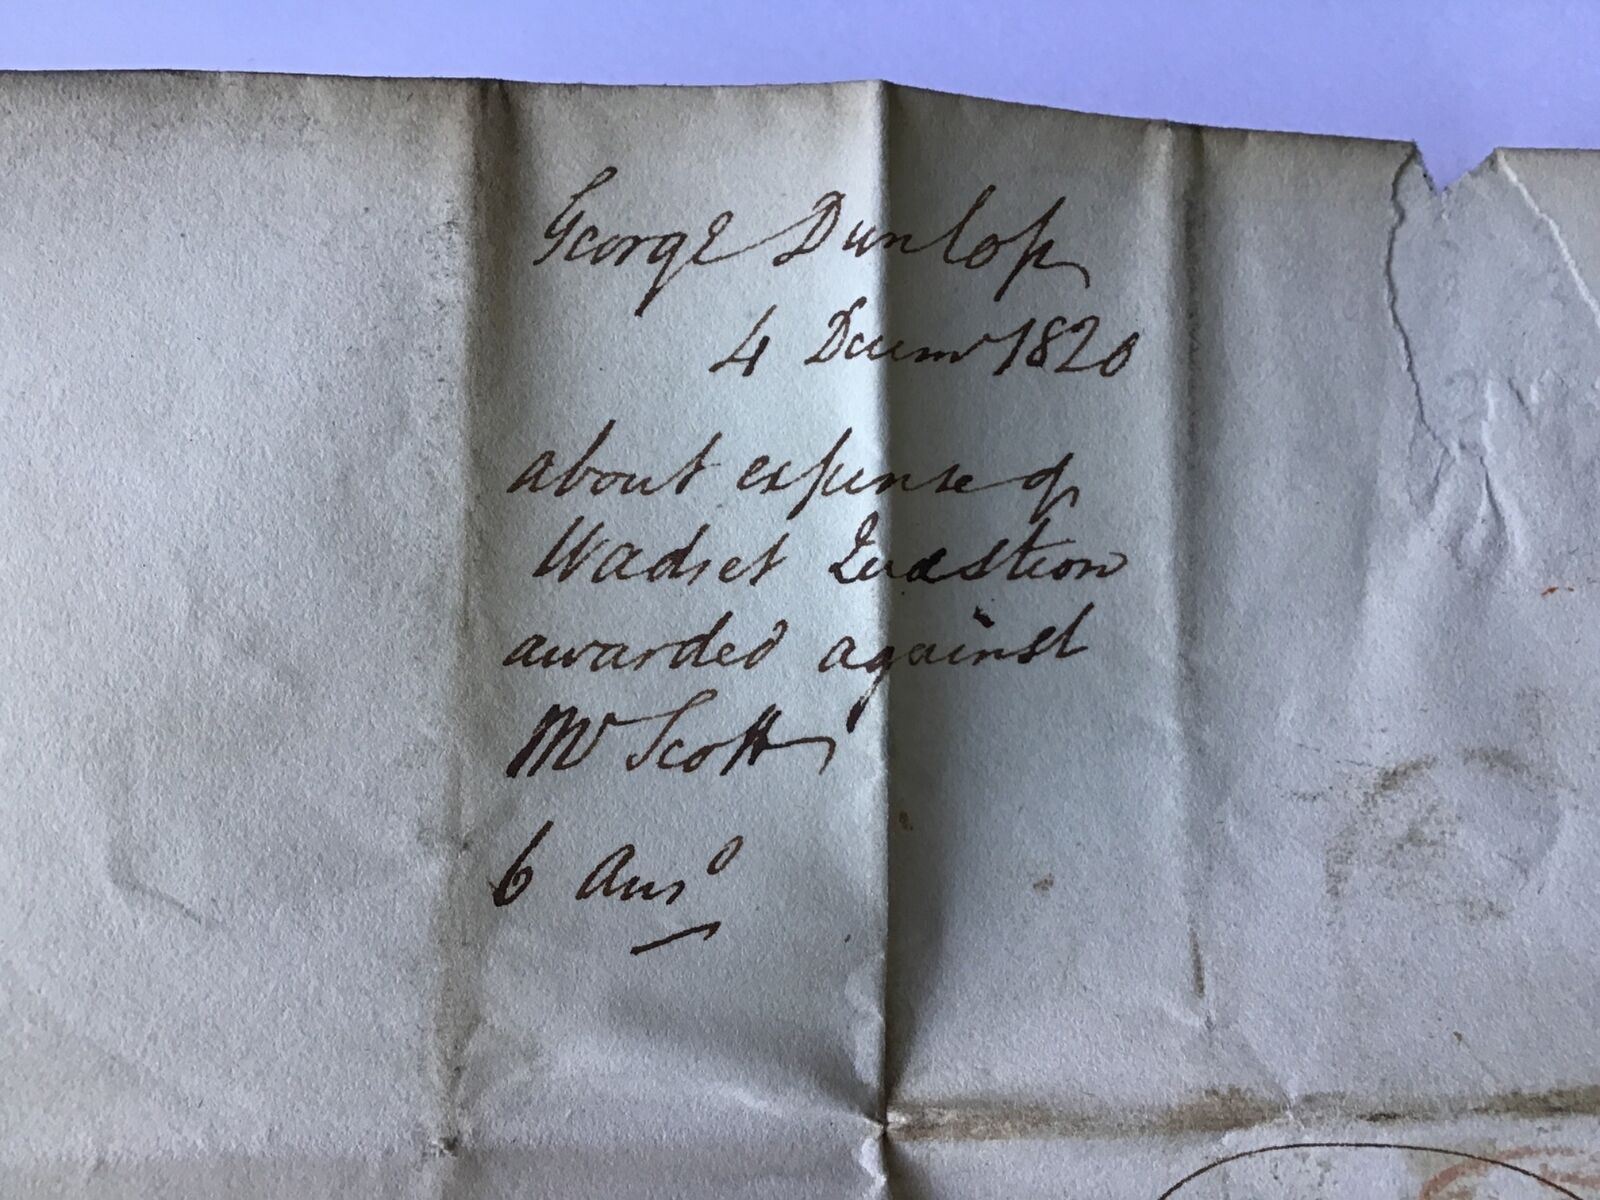 George Dunlop
4 Decemr 1820
about expense of
Wadset Question
awarded against
Mr Scott
6 Ansd